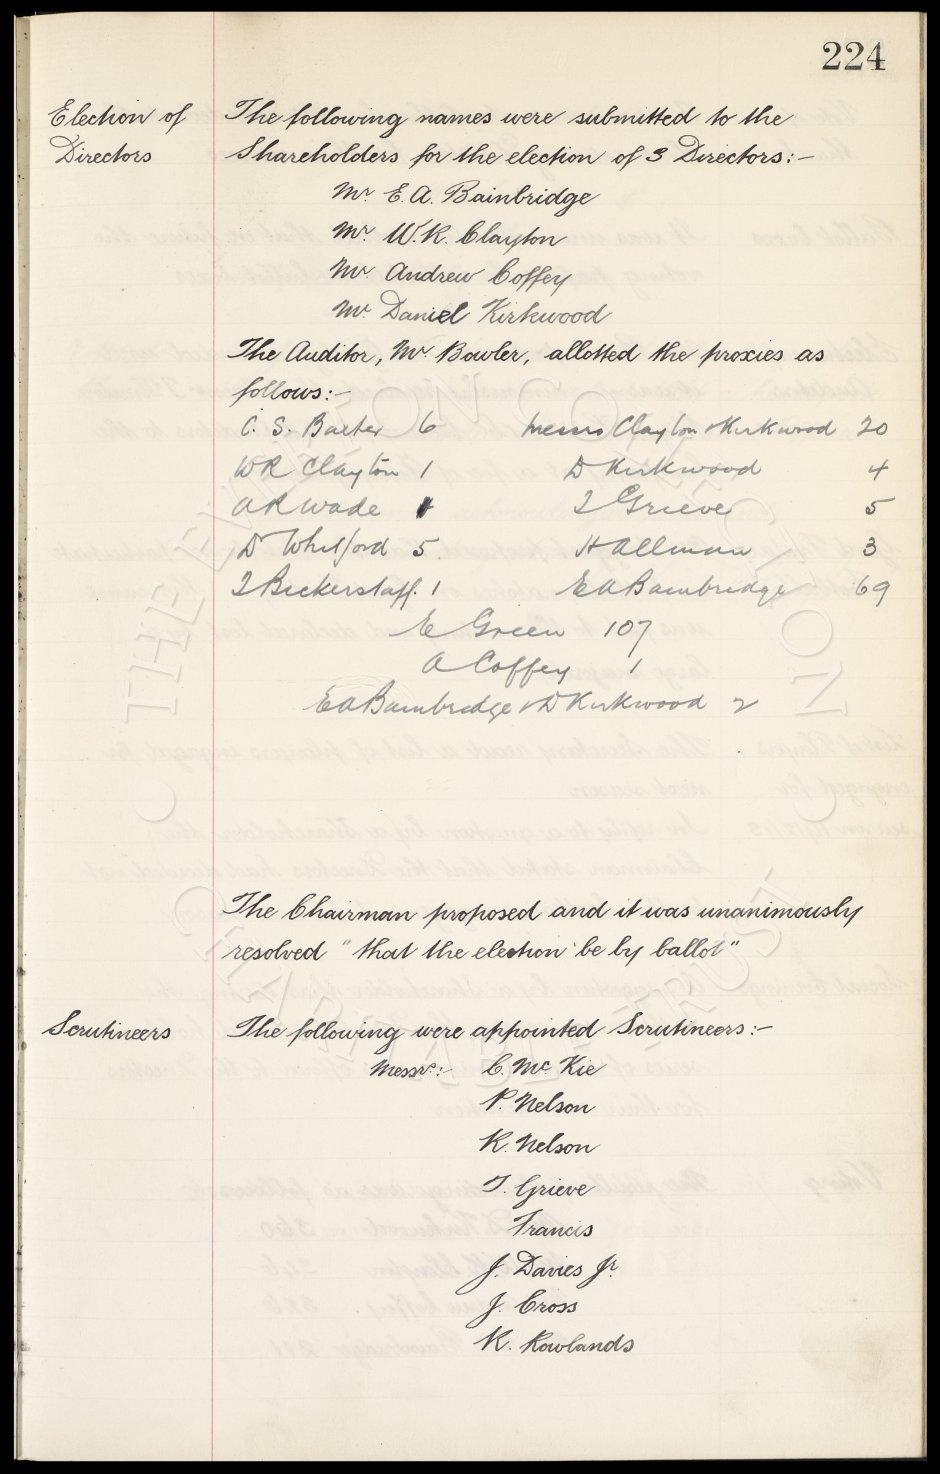 224
Election of
Directors
The following names were submitted to the
Shareholders for the election of 3 Directors:-
Mr. E. A. Bainbridge
Mr. W. R. Clayton
Mr. Andrew Coffey
Mr. Daniel Kirkwood
The Auditor, Mr. Bowler, allotted the proxies as
follows:-
C. S. Baxter 6 Messrs Clayton & Kirkwood 20
W R Clayton 1 D Kirkwood 4
A R Wade 1 T Grieve 5
D Whitford 5. H Allman 3
T Bickerstaff. 1 E A Bambridge 69
E Green 107
A Coffey 1
E A Bambridge & D Kirkwood 2
The Chairman proposed and it was unanimously
resolved "that the election be by ballot"
Scrutineers
The following were appointed Scrutineers:-
Messrs:- C. McKie
P. Nelson
R. Nelson
T. Grieve
Francis
J. Davies Jr.
J. Cross
R. Rowlands